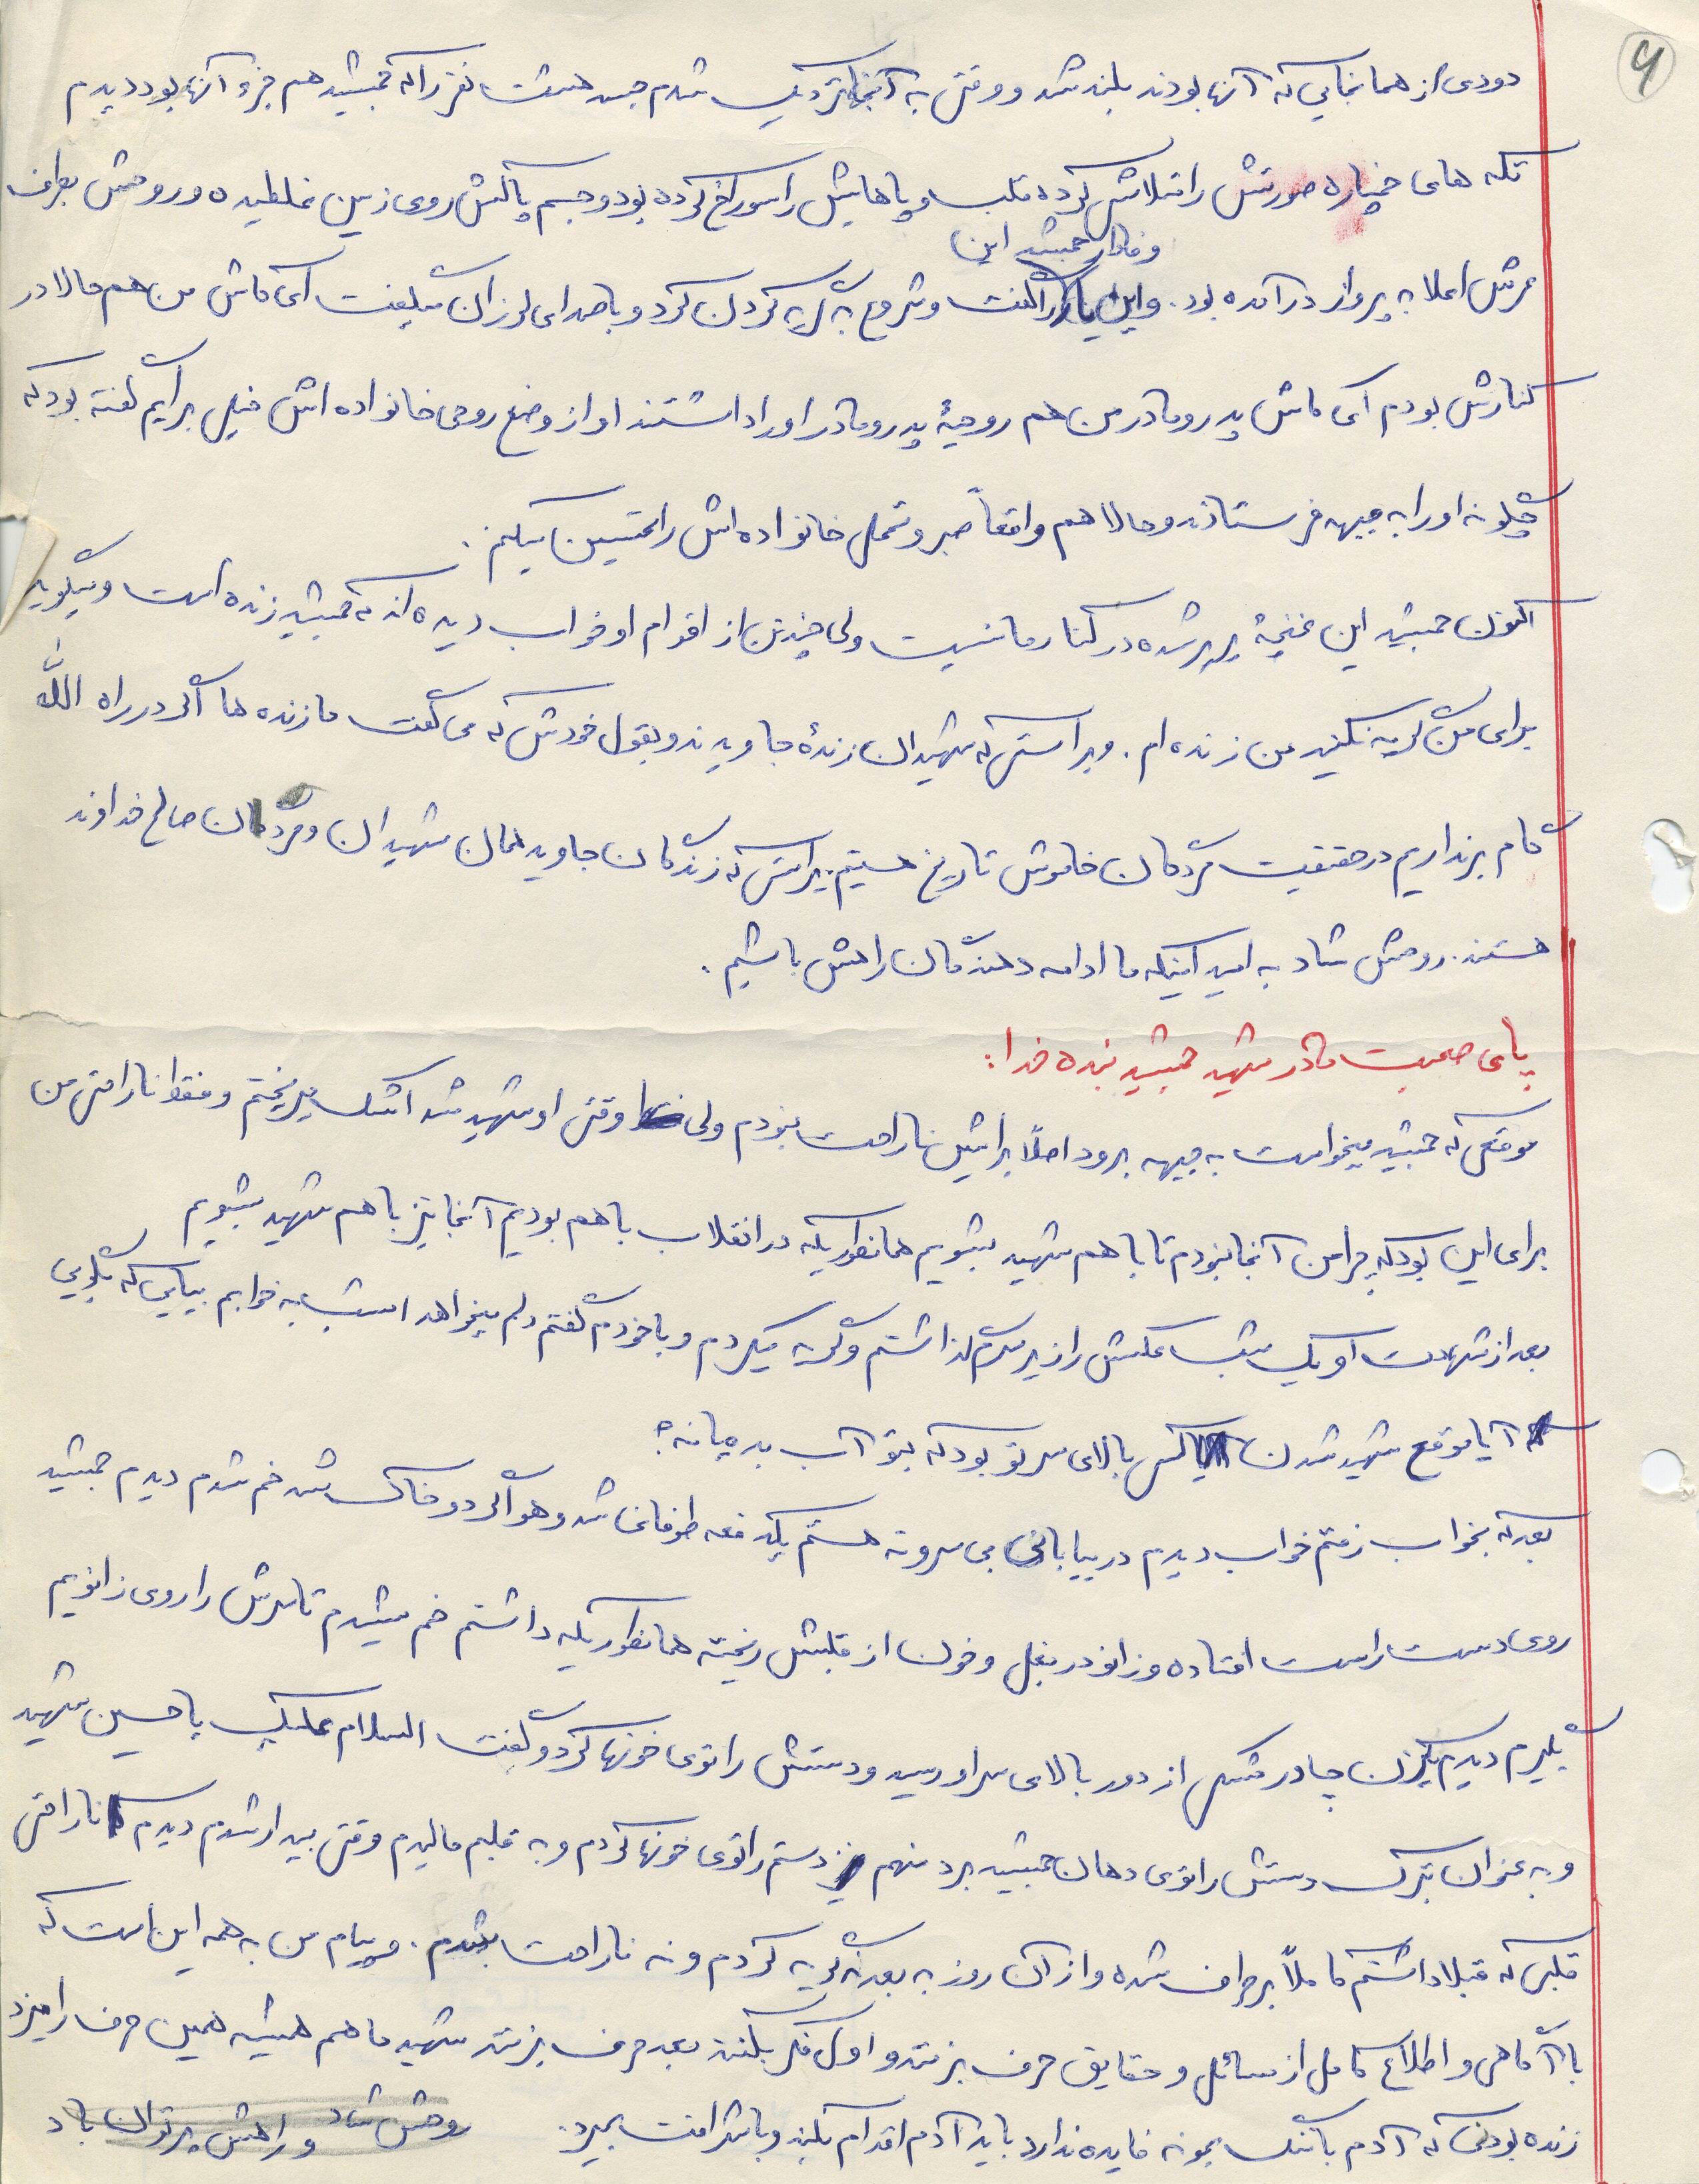 ۴
دودی از همانجایی که آنها بودند بلند شد و وقتی به آنجا نزدیک شدم جسد هشت نفر را که جمشید هم جزو آنها بود دیدم
تکه های خمپاره صورتش را متلاشی کرده قلب و پاهایش را سوراخ کرده بود و جسم پاکش روی زمین غلطیده و روحش بطرف
عرش اعلا به پرواز درآمده بود. وفادار جمشید این را گفت و شروع به گریه کردن کرد و با صدای لرزان میگفت ای کاش من هم حالا در
کنارش بودم ای کاش پدر و مادر من هم روحیهٔ پدر و مادر او را داشتند او از وضع روحی خانواده اش خیلی برایم گفته بود که
چگونه او را به جبهه فرستادند و حالا هم واقعاً صبر و تحمل خانواده اش را تحسین میکنم.
اکنون جمشید این غنچهٔ پرپر شده در کنار ما نیست ولی چند تن از اقوام او خواب دیده اند که جمشید زنده است و میگوید
برای من گریه نکنید من زنده ام. و براستی که شهیدان زندهٔ جاویدند و بقول خودش که می گفت ما زنده ها اگر در راه الله
گام برنداریم در حقیقت مردگان خاموش تاریخ هستیم براستی که زندگان جاوید همان شهیدان و مردگان صالح خداوند
هستند. روحش شاد به امید اینکه ما ادامه دهندگان راهش باشیم.
پای صحبت مادر شهید جمشید بنده خدا:
موقعی که جمشید میخواست به جبهه برود اصلاً برایش ناراحت نبودم ولی وقتی او شهید شد اشک میریختم و فقط ناراحتی من
برای این بود که چرا من آنجا نبودم تا با هم شهید بشویم همانطوریکه در انقلاب با هم بودیم آنجا نیز با هم شهید بشویم
بعد از شهادت او یک شب عکسش را زیر سرم گذاشتم و گریه میکردم و با خودم گفتم دلم میخواهد امشب به خوابم بیایی که بگویی
آیا موقع شهید شدن کسی بالای سر تو بود که بتو آب بدهد یا نه؟
بعد که بخواب رفتم خواب دیدم در بیابانی بی سر و ته هستم یکدفعه طوفانی شد و هوا گرد و خاک شد خم شدم دیدم جمشید
روی دست راست افتاده و زانو در بغل و خون از قلبش ریخته همانطوریکه داشتم خم میشدم تا سرش را روی زانویم
بگیرم دیدم یکزن چادر مشکی از دور بالای سر او رسید و دستش را توی خونها کرد و گفت السلام علیک یا حسین شهید
و به عنوان تبرک دستش را توی دهان جمشید برد منهم دستم را توی خونها کردم و به قلبم مالیدم وقتی بیدار شدم دیدم ناراحتی
قلبی که قبلا داشتم کاملاً برطرف شده و از آن روز به بعد نه گریه کردم و نه ناراحت شدم. و پیام من به همه این است که
با آگاهی و اطلاع کامل از مسائل و حقایق حرف بزنند و اول فکر بکنند بعد حرف بزنند شهید ما هم همیشه همین حرف را میزد
زنده بودنی که آدم با ننگ بمونه فایده ندارد باید آدم اقدام بکند و با شرافت بمیرد. روحش شاد و راهش پر توان باد